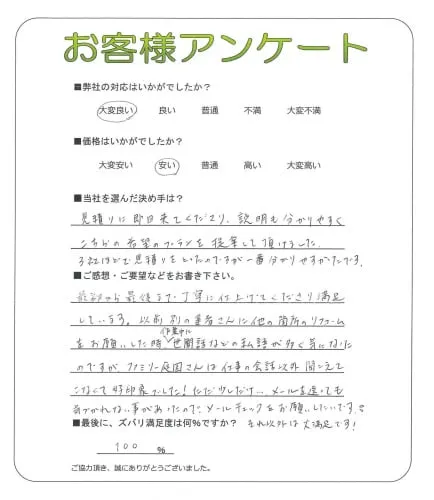 お客様アンケート
■弊社の対応はいかがでしたか?
大変良い 良い 普通 不満 大変不満
■価格はいかがでしたか?
大変安い 安い 普通 高い 大変高い
■当社を選んだ決め手は?
見積りに即日来てくださり、説明も分かりやすく
こちらの希望のプランを提案して頂けました。
3社ほどで見積りをとったのですが一番分かりやすかったです。
■ご感想・ご要望などをお書き下さい。
最初から最後まで丁寧に仕上げてくださり満足
しています。以前別の業者さんに他の箇所のリフォーム
をお願いした時、作業中に世間話などの私語が多く気になった
のですが、ファミリー庭園さんは仕事の会話以外聞こえて
こなくて好印象でした!ただ少しだけ…、メールを送っても
気づかれない事があったので、メールチェックをお願いしたいです。
■最後に、ズバリ満足度は何%ですか? それ以外は大満足です!
100 %
ご協力頂き、誠にありがとうございました。